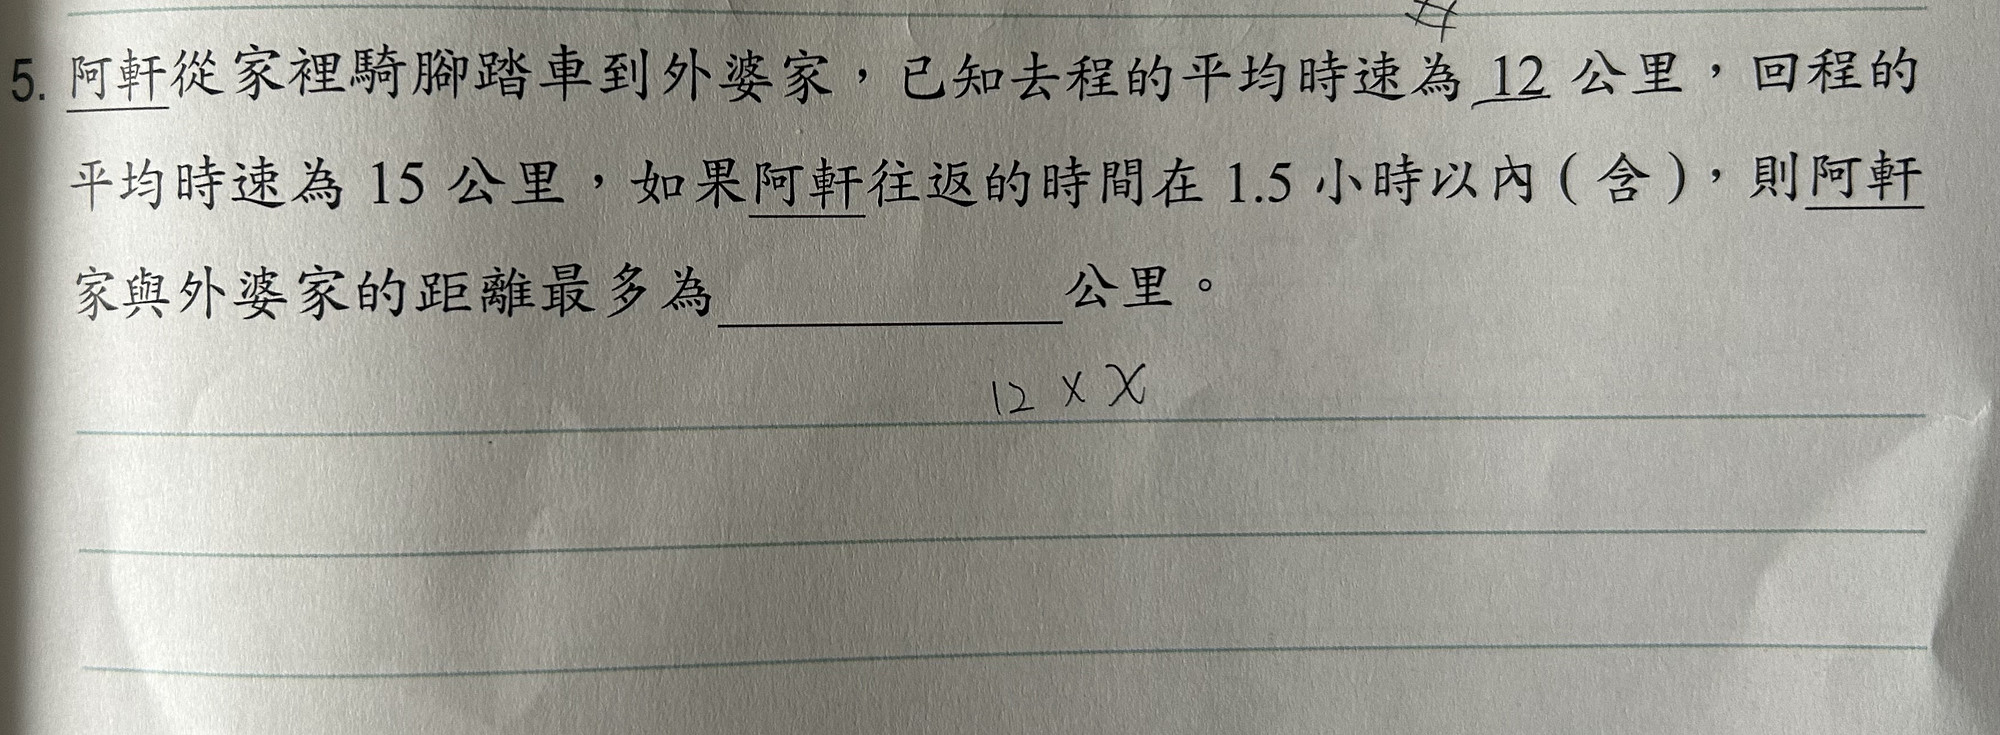 5. 阿軒從家裡騎腳踏車到外婆家，已知去程的平均時速為 12 公里，回程的
平均時速為 15 公里，如果阿軒往返的時間在 1.5 小時以內（含），則阿軒
家與外婆家的距離最多為＿＿＿＿＿＿公里。
12 × x